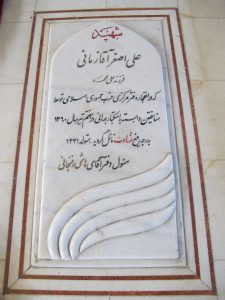 شهید
علی اصغر آقازمانی
فرزند علی محمد
که در انفجار دفتر مرکزی حزب جمهوری اسلامی توسط
منافقین وابسته به استکبار جهانی در هفتم تیر سال ۱۳۶۰
به درجه رفیع شهادت نائل گردید متولد ۱۳۳۱
مسئول دفتر آقای هاشمی رفسنجانی